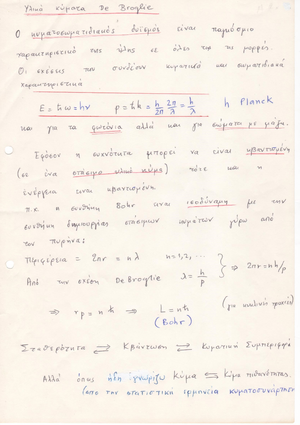 Υλικά κύματα De Broglie
Ο κυματοσωματιδιακός δυϊσμός είναι παγκόσμιο
χαρακτηριστικό της ύλης σε όλες της τις μορφές.
Οι σχέσεις που συνδέουν κυματικά και σωματιδιακά
χαρακτηριστικά
E = ħω = hν p = ħk = h/2π 2π/λ = h/λ h Planck
και για τα φωτόνια αλλά και για σώματα με μάζα.
Εφόσον η συχνότητα μπορεί να είναι κβαντισμένη
(σε ένα στάσιμο υλικό κύμα) τότε και η
ενέργεια είναι κβαντισμένη
π.χ. η συνθήκη Bohr είναι ισοδύναμη με την
συνθήκη δημιουργίας στάσιμων κυμάτων γύρω από
τον πυρήνα:
Περιφέρεια = 2πr = nλ n=1,2,...
Από την σχέση De Broglie λ = h/p } ⇒ 2πr = nh/p
⇒ rp = nħ ⇒ L = nħ (για κυκλικές τροχιές)
(Bohr)
Σταθερότητα ⇄ Κβάντωση ⇄ Κυματική Συμπεριφορά
Αλλά όπως ήδη γνωρίζω κύμα ⇆ κύμα πιθανότητας.
(από την στατιστική ερμηνεία κυματοσυνάρτησης)